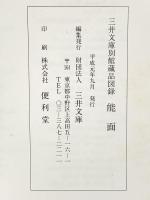 三井文庫別館蔵品図録 能面
平成元年九月 発行
編集発行 財団法人 三井文庫
〒165 東京都中野区上高田五-一六-一
TEL 〇三-三八七-二二一一
印刷 株式会社 便利堂